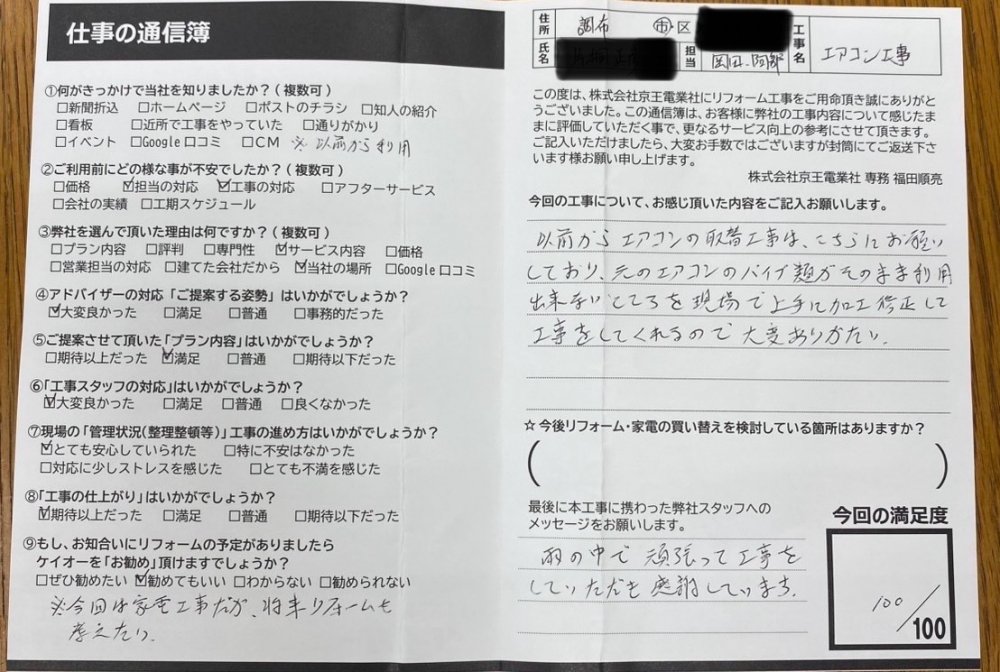 仕事の通信簿
①何がきっかけで当社を知りましたか？（複数可）
□新聞折込 □ホームページ □ポストのチラシ □知人の紹介
□看板 □近所で工事をやっていた □通りがかり
□イベント □Google口コミ □CM ※以前から利用
②ご利用前にどの様な事が不安でしたか？（複数可）
□価格 ☑担当の対応 ☑工事の対応 □アフターサービス
□会社の実績 □工期スケジュール
③弊社を選んで頂いた理由は何ですか？（複数可）
□プラン内容 □評判 □専門性 ☑サービス内容 □価格
□営業担当の対応 □建てた会社だから ☑当社の場所 □Google口コミ
④アドバイザーの対応「ご提案する姿勢」はいかがでしょうか？
☑大変良かった □満足 □普通 □事務的だった
⑤ご提案させて頂いた「プラン内容」はいかがでしょうか？
□期待以上だった ☑満足 □普通 □期待以下だった
⑥「工事スタッフの対応」はいかがでしょうか？
☑大変良かった □満足 □普通 □良くなかった
⑦現場の「管理状況（整理整頓等）」工事の進め方はいかがでしょうか？
☑とても安心していられた □特に不安はなかった
□対応に少しストレスを感じた □とても不満を感じた
⑧「工事の仕上がり」はいかがでしょうか？
☑期待以上だった □満足 □普通 □期待以下だった
⑨もし、お知合いにリフォームの予定がありましたら
ケイオーを「お勧め」頂けますでしょうか？
□ぜひ勧めたい ☑勧めてもいい □わからない □勧められない
※今回は家電工事だが、将来リフォームも
考えたい。
住所 調布 市・区
氏名 担当 岡田、阿部
工事名 エアコン工事
この度は、株式会社京王電業社にリフォーム工事をご用命頂き誠にありがと
うございました。この通信簿は、お客様に弊社の工事内容について感じたま
まに評価していただく事で、更なるサービス向上の参考にさせて頂きます。
ご記入いただけましたら、大変お手数ではございますが封筒にてご返送下さ
います様お願い申し上げます。
株式会社京王電業社 専務 福田順亮
今回の工事について、お感じ頂いた内容をご記入お願いします。
以前からエアコンの取替工事は、こちらにお願い
しており、元のエアコンのパイプ類がそのまま利用
出来ないところを現場で上手に加工修正して
工事をしてくれるので大変ありがたい。
☆今後リフォーム・家電の買い替えを検討している箇所はありますか？
最後に本工事に携わった弊社スタッフへの
メッセージをお願いします。
雨の中で頑張って工事を
していただき感謝しています。
今回の満足度
100/100